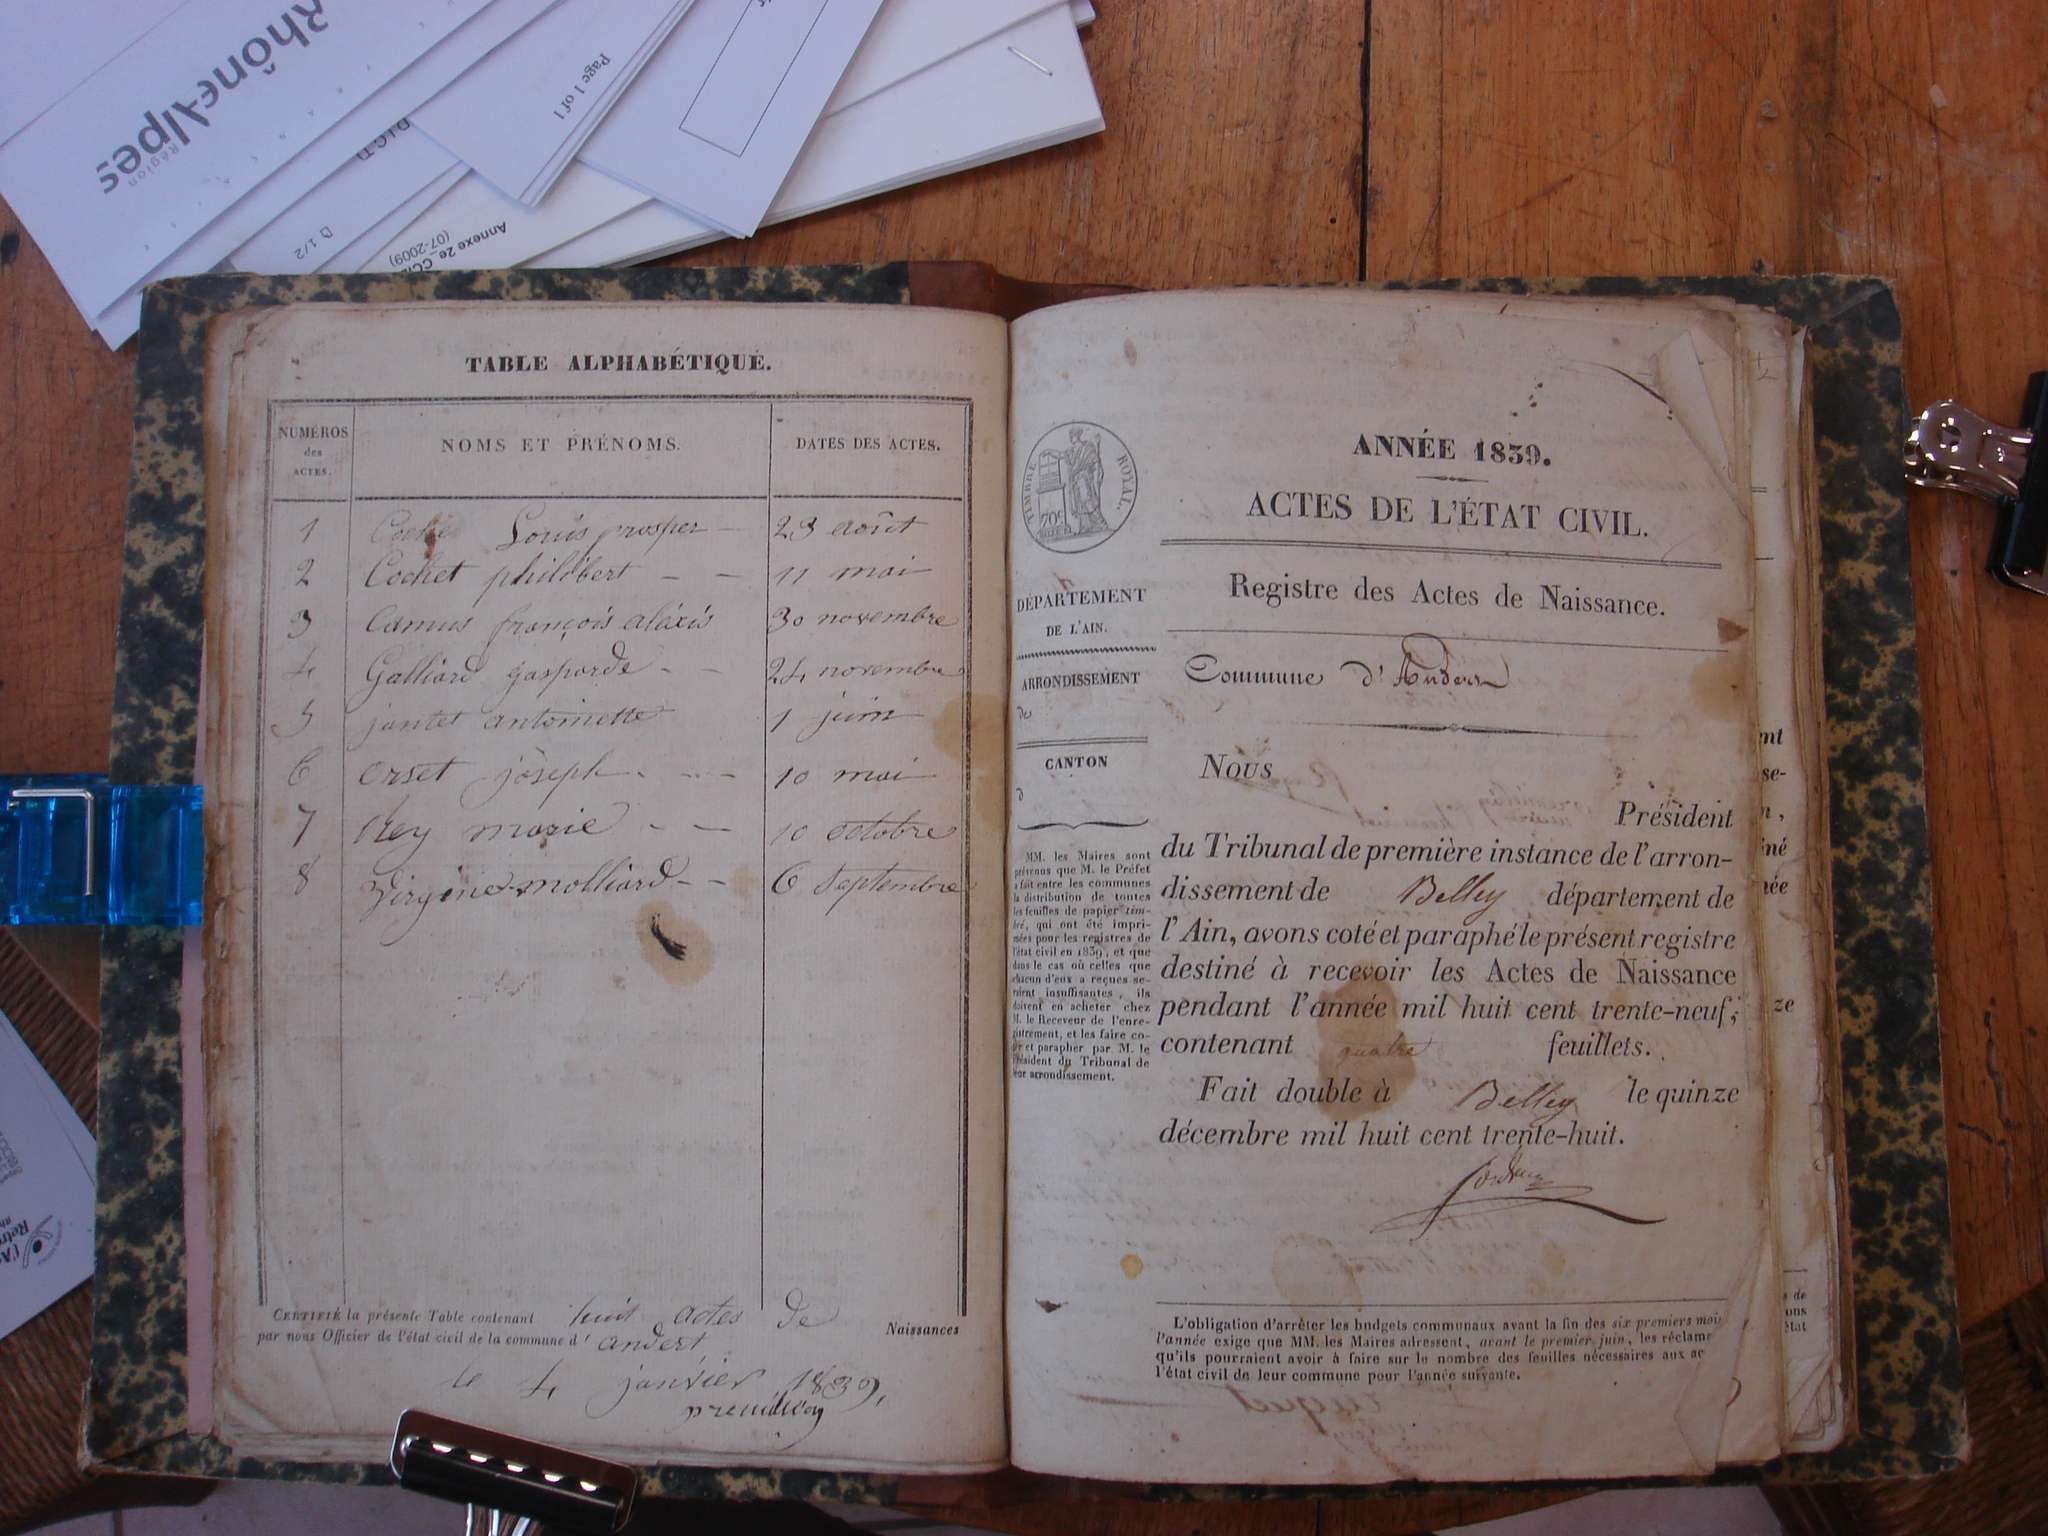 Rhône-Alpes
Région
Page 1 of 1
D 1/2
Annexe 2e
(07-2009)
TABLE ALPHABÉTIQUE.
NUMÉROS
des
ACTES.
NOMS ET PRÉNOMS.
DATES DES ACTES.
1 Louis prosper — 23 août
2 Cochet philibert — — 11 mai
3 Camus françois aléxis 30 novembre
4 Galliard gasparde - — 24 novembre
5 jantet antoinette 1 juin
6 Orset joseph - — 10 mai
7 Rey marie - — 10 octobre
8 Virginie molliard - — 6 Septembre
CERTIFIÉ la présente Table contenant huit actes de Naissances
par nous Officier de l'état civil de la commune d' andert
le 4 janvier 1839,
ANNÉE 1839.
ACTES DE L'ÉTAT CIVIL.
TIMBRE ROYAL.
70c
DÉPARTEMENT
DE L'AIN.
ARRONDISSEMENT
de
CANTON
d
MM. les Maires sont
prévenus que M. le Préfet
a fait entre les communes
la distribution de toutes
les feuilles de papier tim-
bré, qui ont été impri-
mées pour les registres de
l'état civil en 1839, et que
dans le cas où celles que
chacun d'eux a reçues se-
raient insuffisantes, ils
doivent en acheter chez
M. le Receveur de l'enre-
gistrement, et les faire co-
ter et parapher par M. le
Président du Tribunal de
leur arrondissement.
Registre des Actes de Naissance.
Commune d'Andert
Nous
Président
du Tribunal de première instance de l'arron-
dissement de Belley département de
l'Ain, avons coté et paraphé le présent registre
destiné à recevoir les Actes de Naissance
pendant l'année mil huit cent trente-neuf;
contenant quatre feuillets.
Fait double à Belley le quinze
décembre mil huit cent trente-huit.
L'obligation d'arrêter les budgets communaux avant la fin des six premiers moi
l'année exige que MM. les Maires adressent, avant le premier juin, les réclam
qu'ils pourraient avoir à faire sur le nombre des feuilles nécessaires aux ac
l'état civil de leur commune pour l'année suivante.